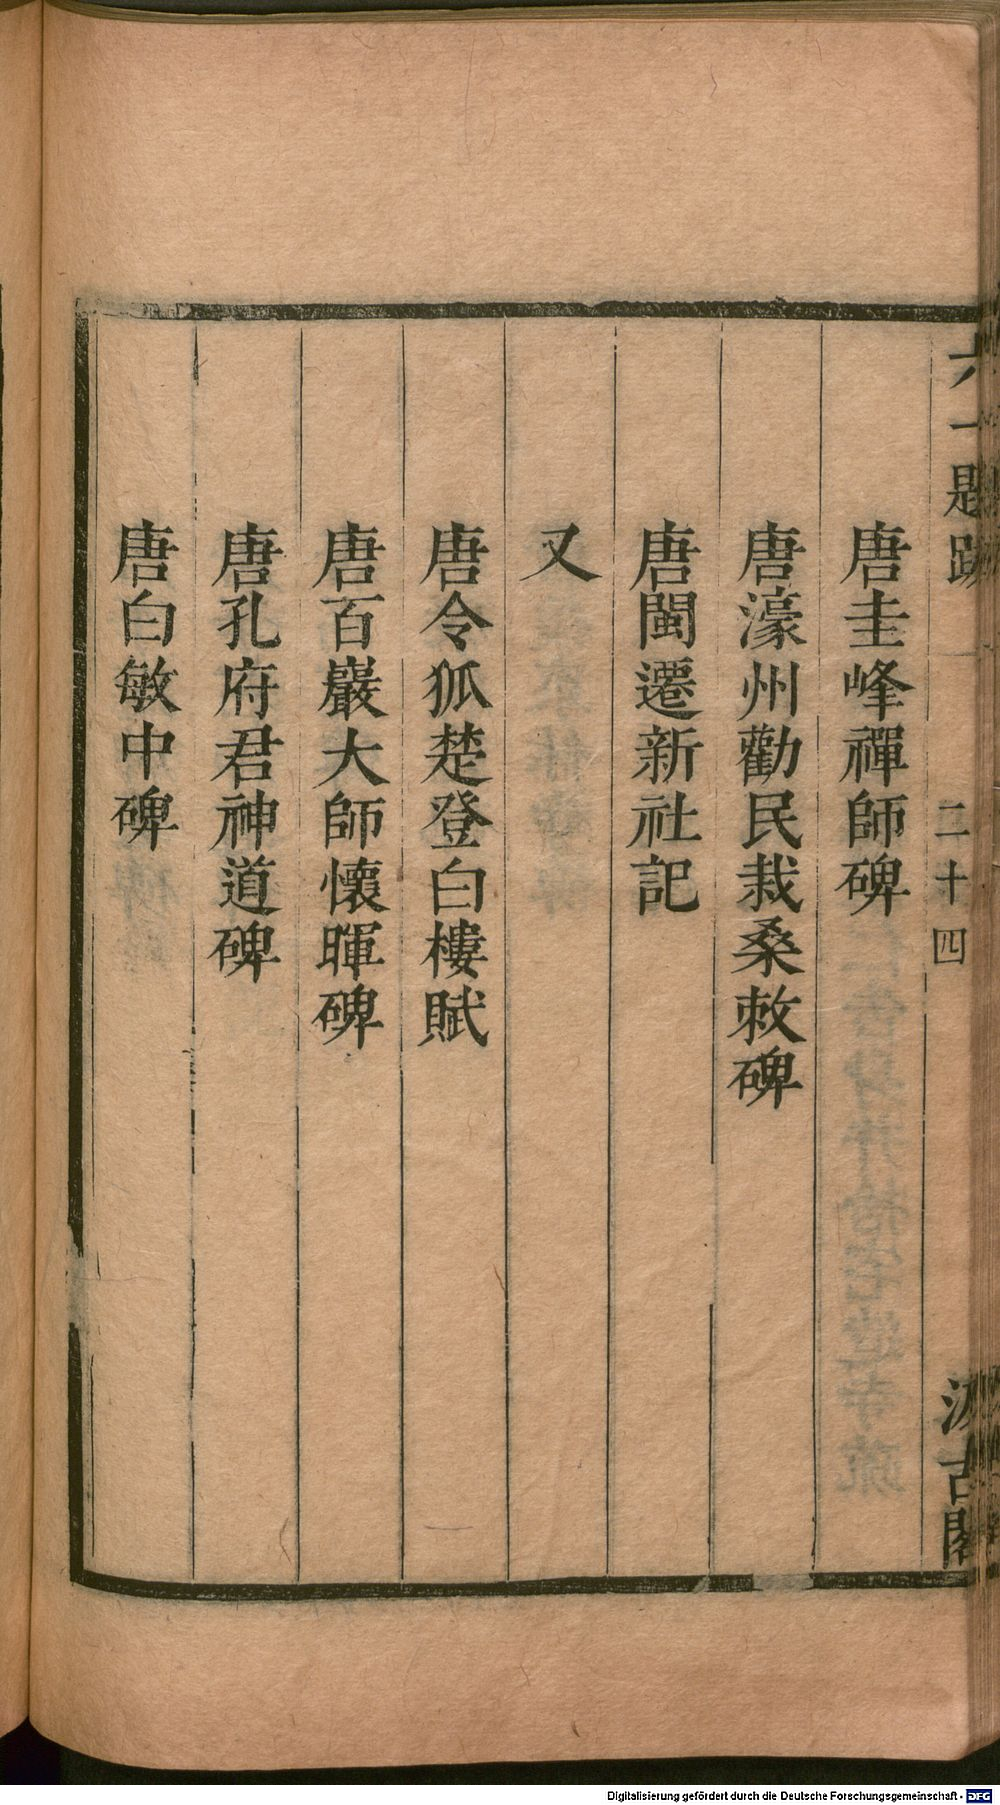 六一題跋
二十四
汲古閣
唐圭峰禪師碑
唐濠州勸民栽桑敕碑
唐閩遷新社記
又
唐令狐楚登白樓賦
唐百巖大師懷暉碑
唐孔府君神道碑
唐白敏中碑
Digitalisierung gefördert durch die Deutsche Forschungsgemeinschaft - DFG